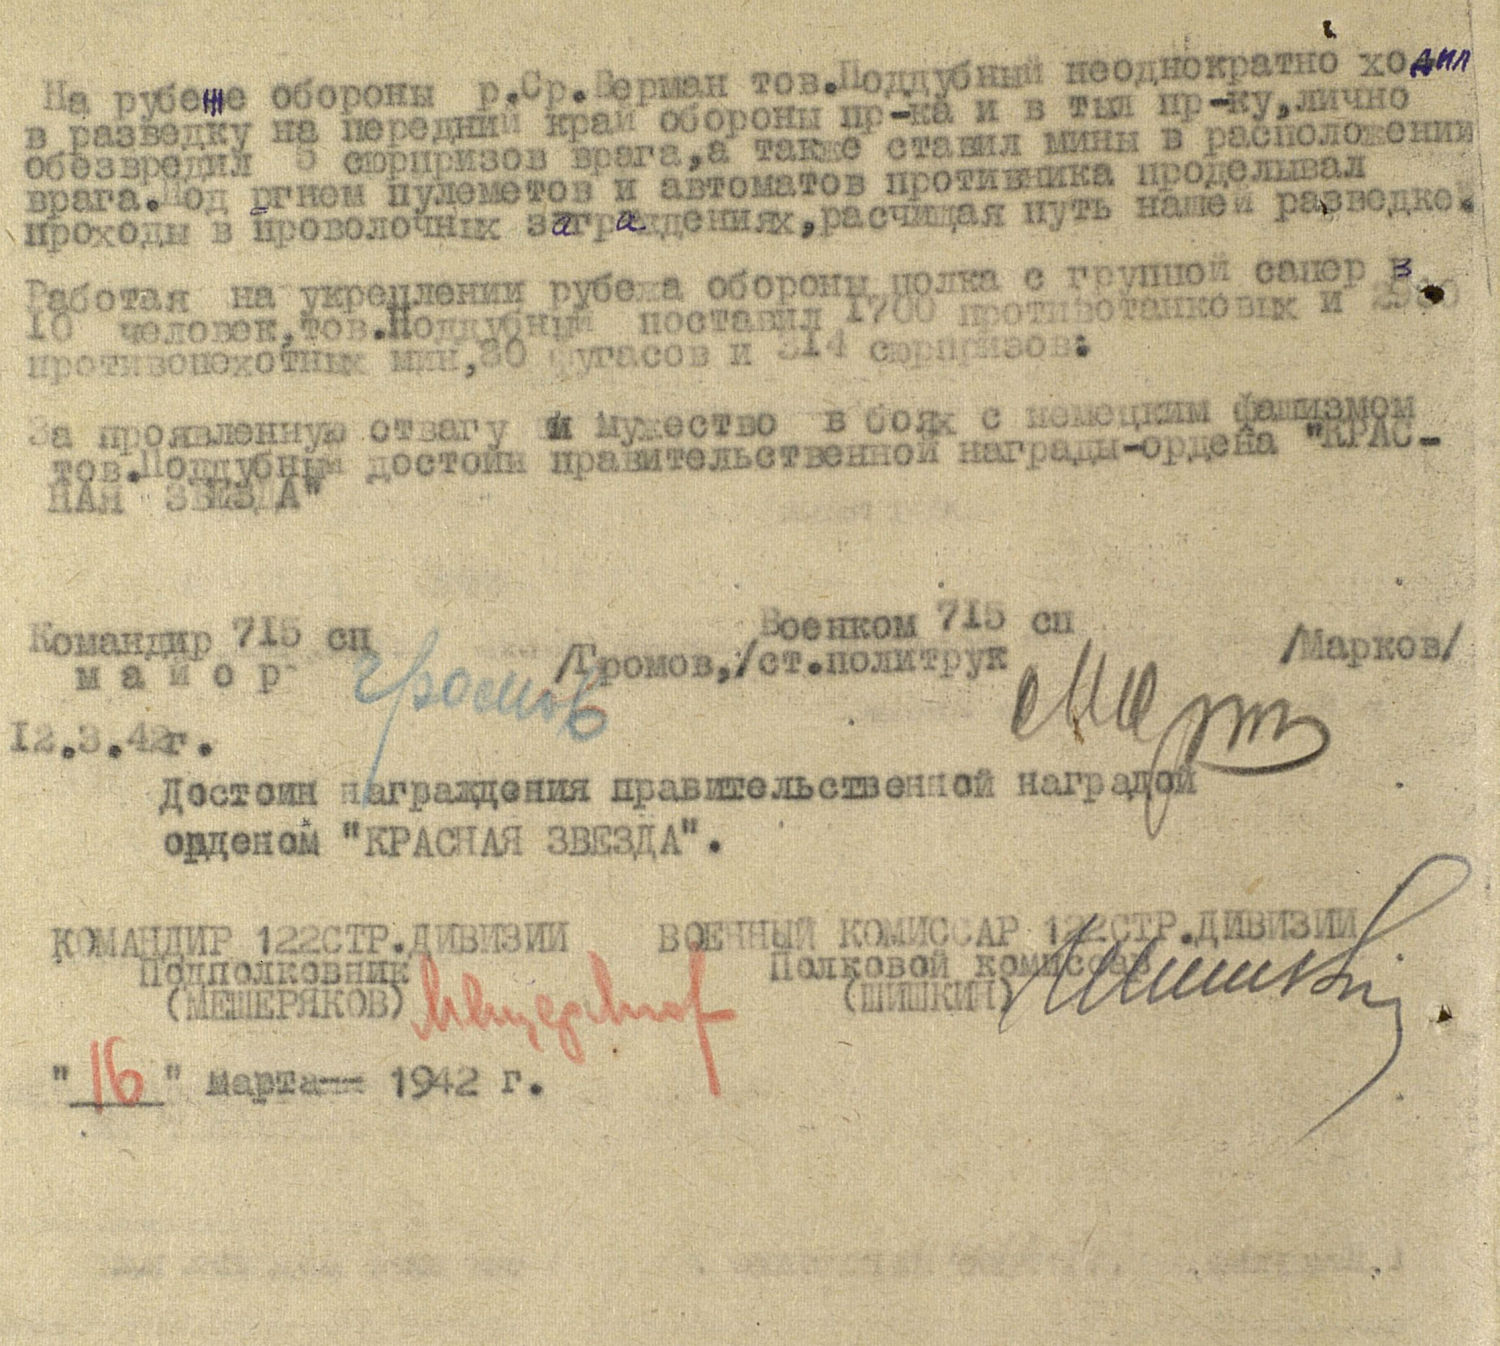 На рубеже обороны р.Ср.Верман тов.Поддубный неоднократно ходил
в разведку на передний край обороны пр-ка и в тыл пр-ку,лично
обезвредил 5 сюрпризов врага,а также ставил мины в расположении
врага.Под огнем пулеметов и автоматов противника проделывал
проходы в проволочных заграждениях,расчищая путь нашей разведке.
Работая на укреплении рубежа обороны полка с группой сапер в
10 человек,тов.Поддубный поставил 1700 противотанковых и
противопехотных мин,80 фугасов и 314 сюрпризов.
За проявленную отвагу и мужество в боях с немецким фашизмом
тов.Поддубный достоин правительственной награды-ордена "КРАС-
НАЯ ЗВЕЗДА"
Командир 715 сп Военком 715 сп
майор Громов /Громов,/ст.политрук /Марков/
12.3.42г.
Достоин награждения правительственной наградой
орденом "КРАСНАЯ ЗВЕЗДА".
КОМАНДИР 122СТР.ДИВИЗИИ ВОЕННЫЙ КОМИССАР 122СТР.ДИВИЗИИ
Подполковник Полковой комиссар
(МЕЩЕРЯКОВ) Мещеряков (ШИШКИН) Шишкин
"16" марта 1942 г.